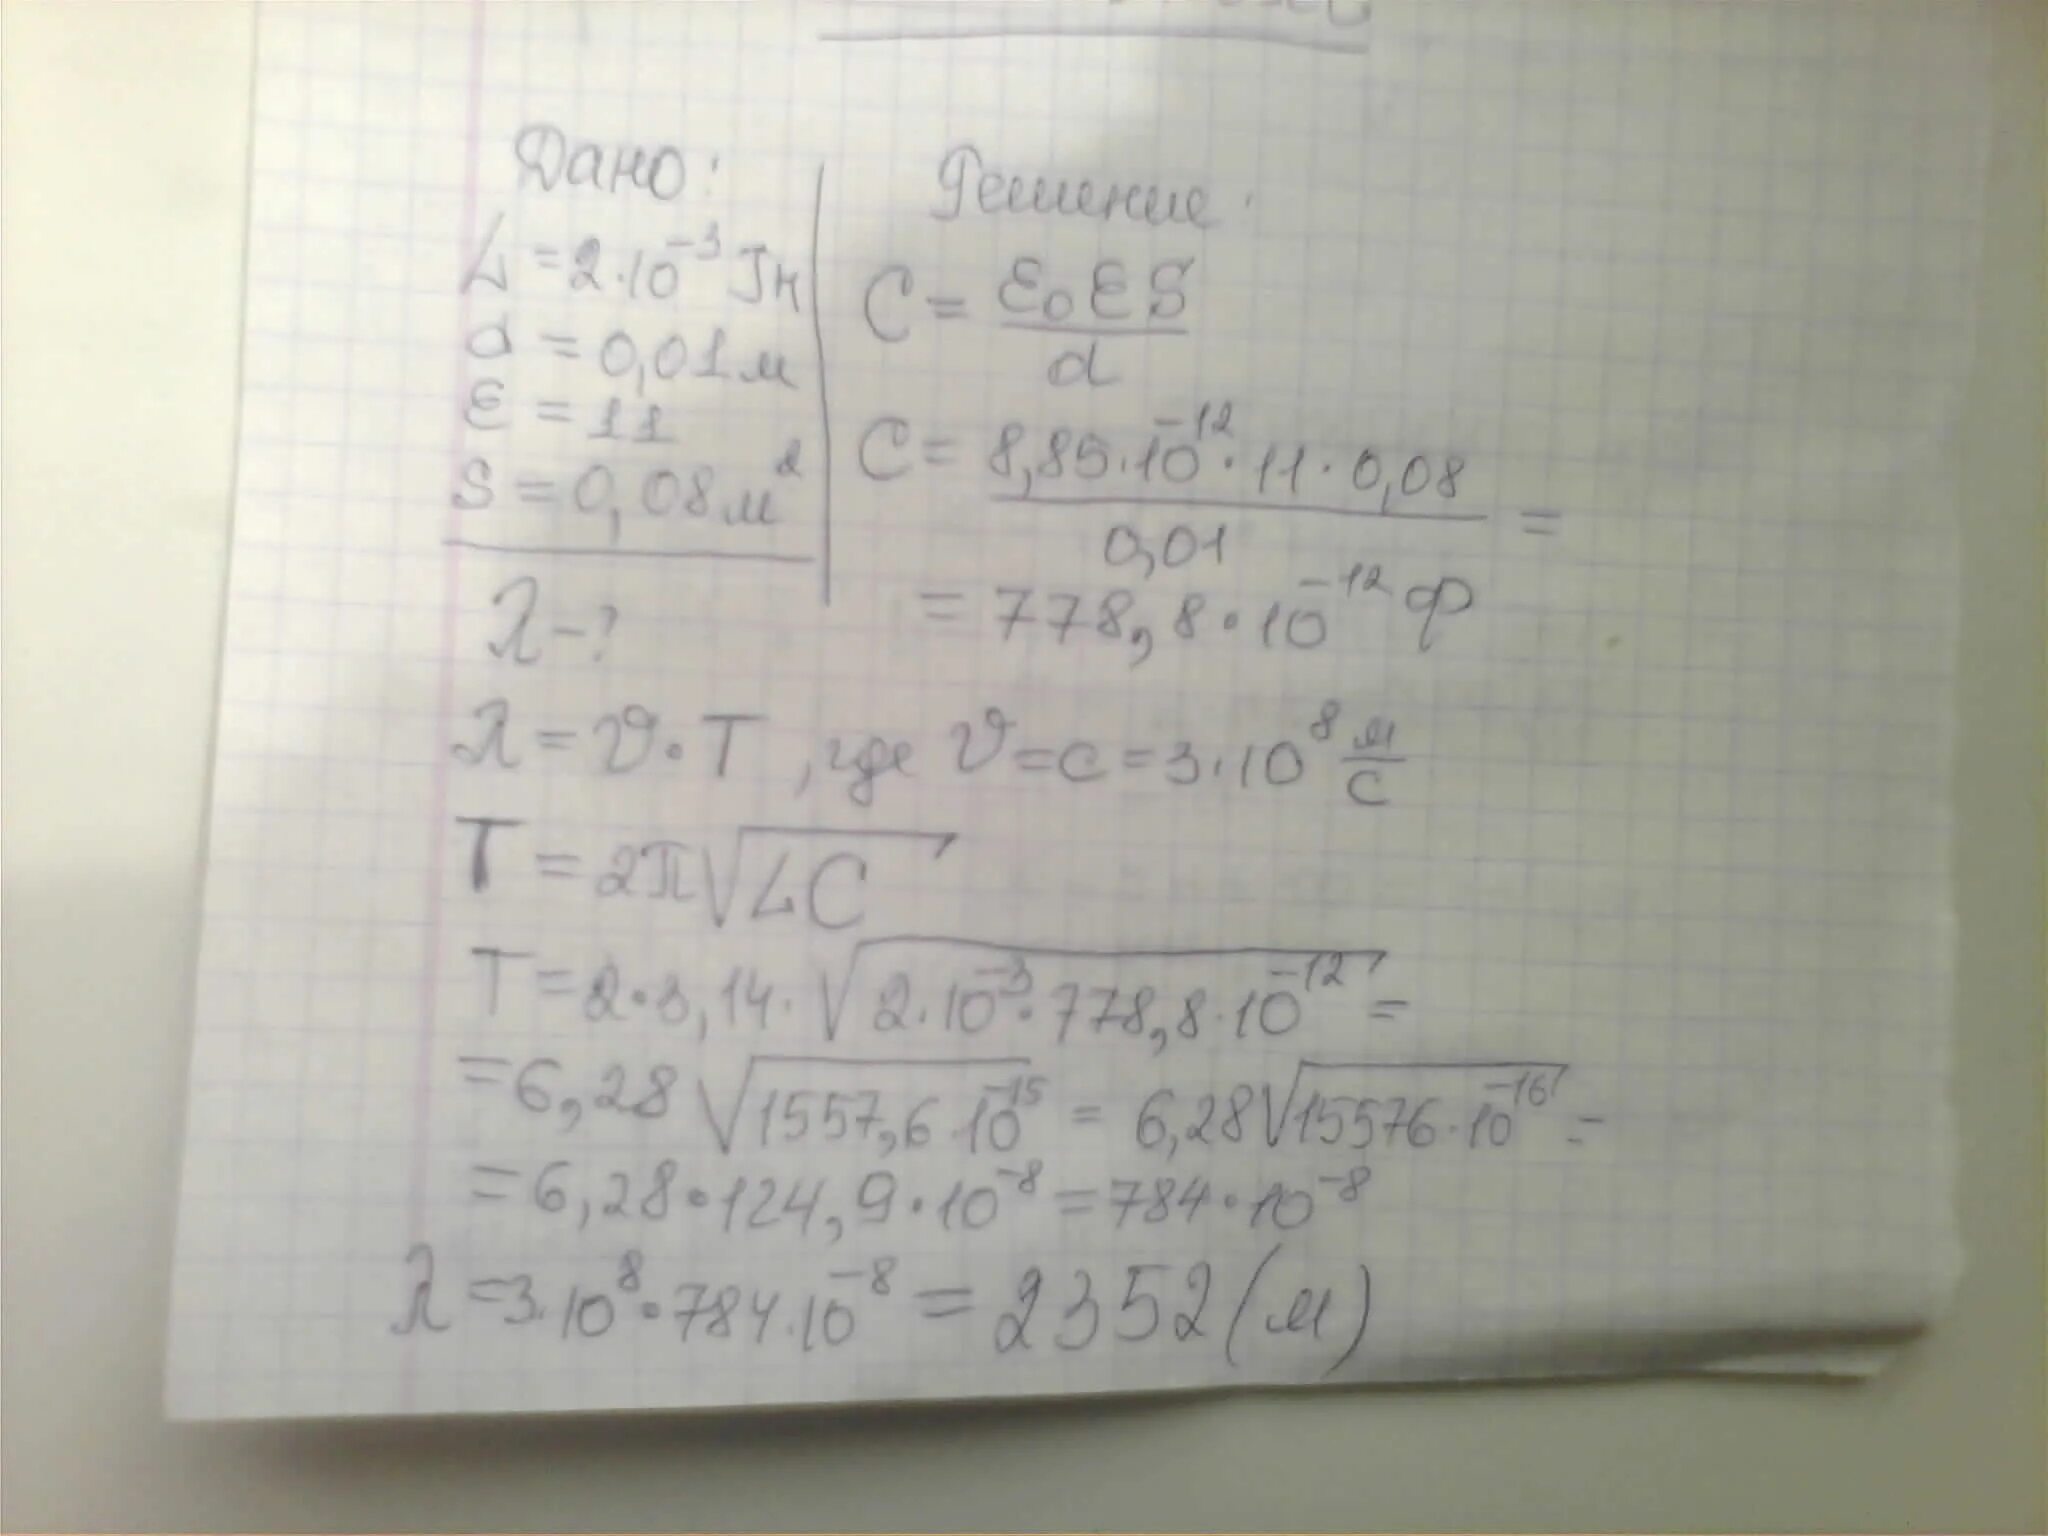 Дано:
L = 2·10⁻³ Гн
d = 0,01 м
ε = 11
S = 0,08 м²
λ - ?
Решение:
C = ε₀εS / d
C = 8,85·10⁻¹²·11·0,08 / 0,01 =
= 778,8·10⁻¹² Ф
λ = υ·T, где υ = c = 3·10⁸ м/с
T = 2π√LC
T = 2·3,14·√2·10⁻³·778,8·10⁻¹² =
= 6,28 √1557,6·10⁻¹⁵ = 6,28√15576·10⁻¹⁶ =
= 6,28·124,9·10⁻⁸ = 784·10⁻⁸
λ = 3·10⁸·784·10⁻⁸ = 2352 (м)